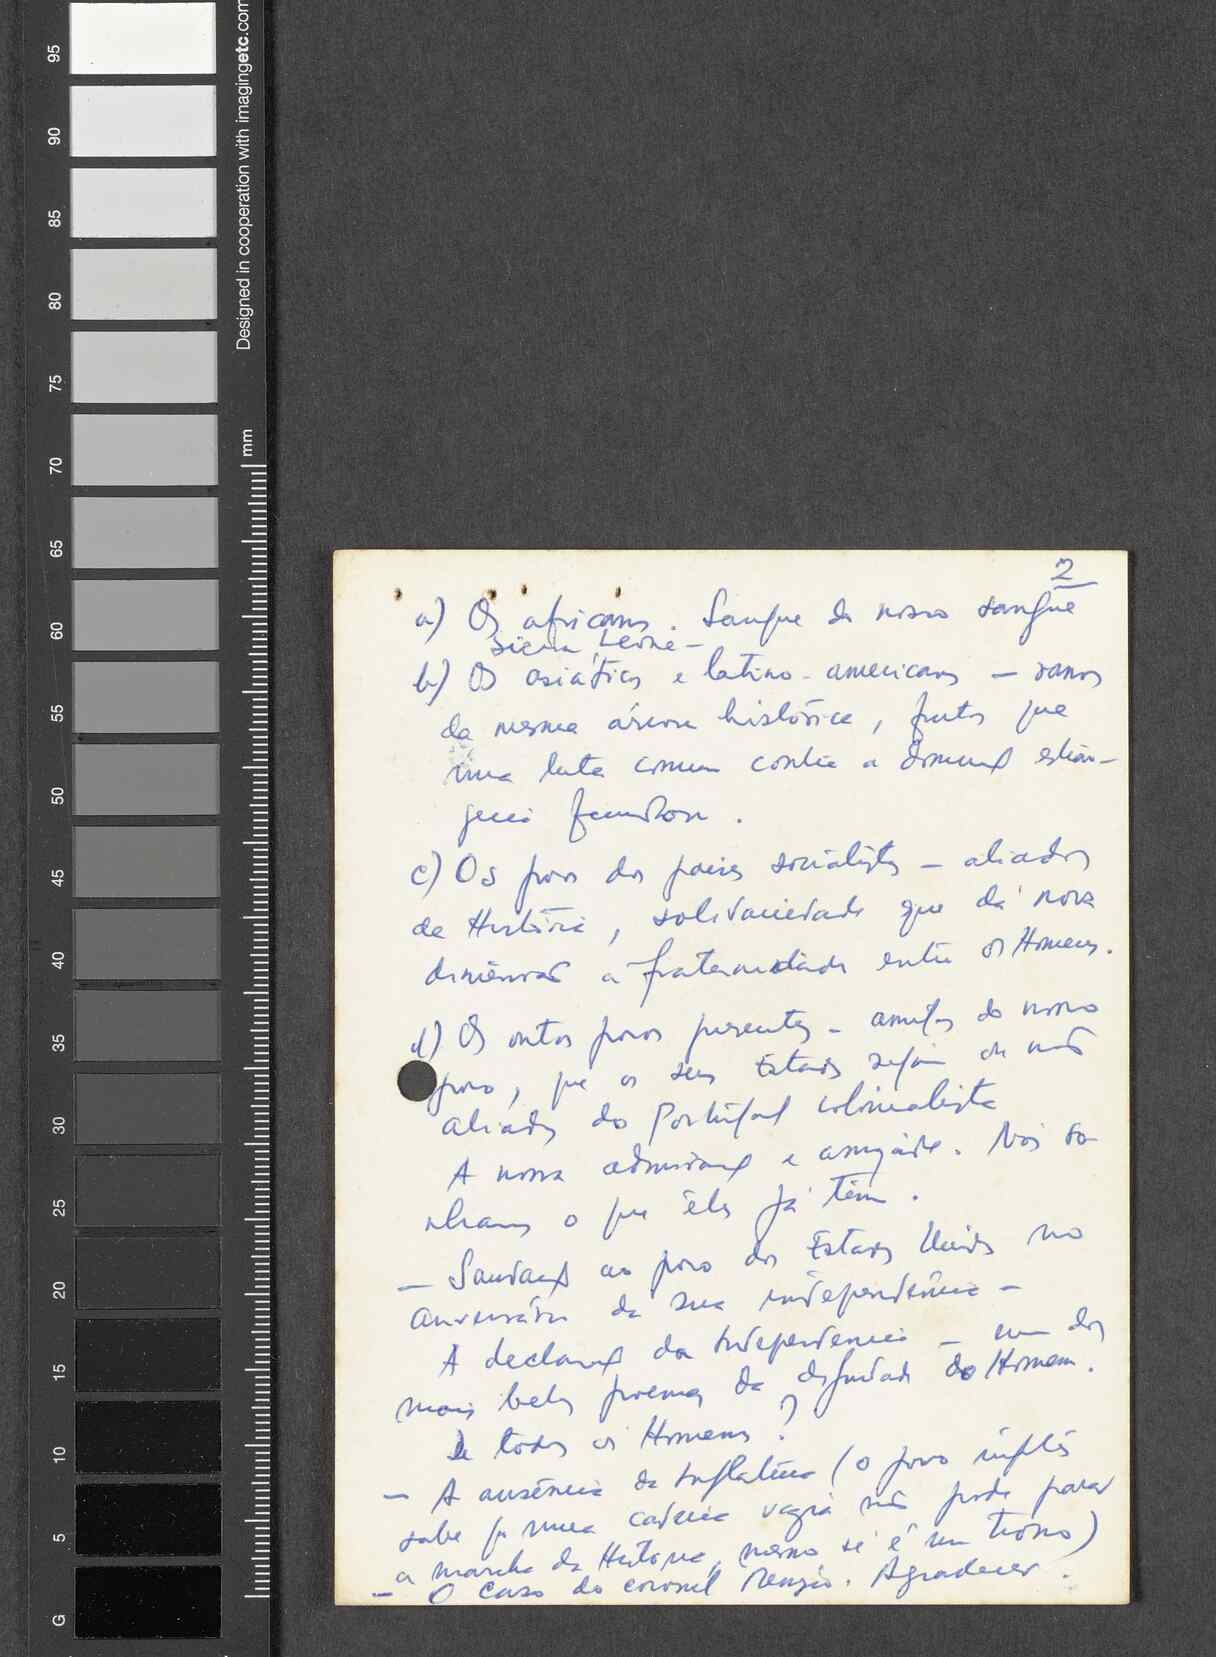 95
90
85
80
75
70
65
60
55
50
45
40
35
30
25
20
15
10
5
G
Designed in cooperation with imagingetc.com
mm
2
a) Os africanos. Sangue do nosso sangue
Sierra Leone -
b) Os asiáticos e latino-americanos - ramos
da mesma árvore histórica, frutos que
uma luta comum contra a dominação estran-
geira
c) Os povos dos países socialistas - aliados
da História, solidariedade que dá nova
dimensão à fraternidade entre os Homens.
d) Os outros povos presentes - amigos do nosso
povo, que os seus Estados sejam ou não
aliados do Portugal colonialista
A nossa admiração e amizade. Nós so-
nhamos o que êles já têm.
- Saudação ao povo dos Estados Unidos no
aniversário da sua independência -
A declaração da Independência - um dos
mais belos poemas da dignidade do Homem.
De todos os Homens?
- A ausência da Inglaterra (o povo inglês
sabe q uma cadeira vazia não pode parar
a marcha da História, mesmo se é um trono)
- O caso do coronel . Agradecer.